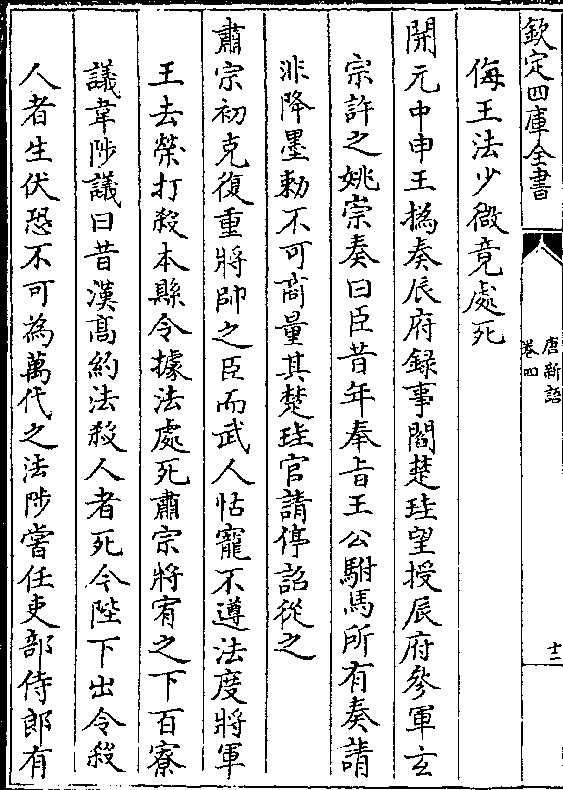 欽定四庫全書
唐新語
卷四
十二
侮王法少微竟處死
開元中申王撝奏辰府録事閻楚珪望授辰府參軍玄
宗許之姚宗奏曰臣昔年奉旨王公駙馬所有奏請
非降墨勅不可商量其楚珪官請停詔從之
肅宗初克復重將帥之臣而武人怙寵不遵法度將軍
王去榮打殺本縣令據法處死肅宗將宥之下百寮
議韋陟議曰昔漢高約法殺人者死今陛下出令殺
人者生伏恐不可為萬代之法陟嘗任吏部侍郎有